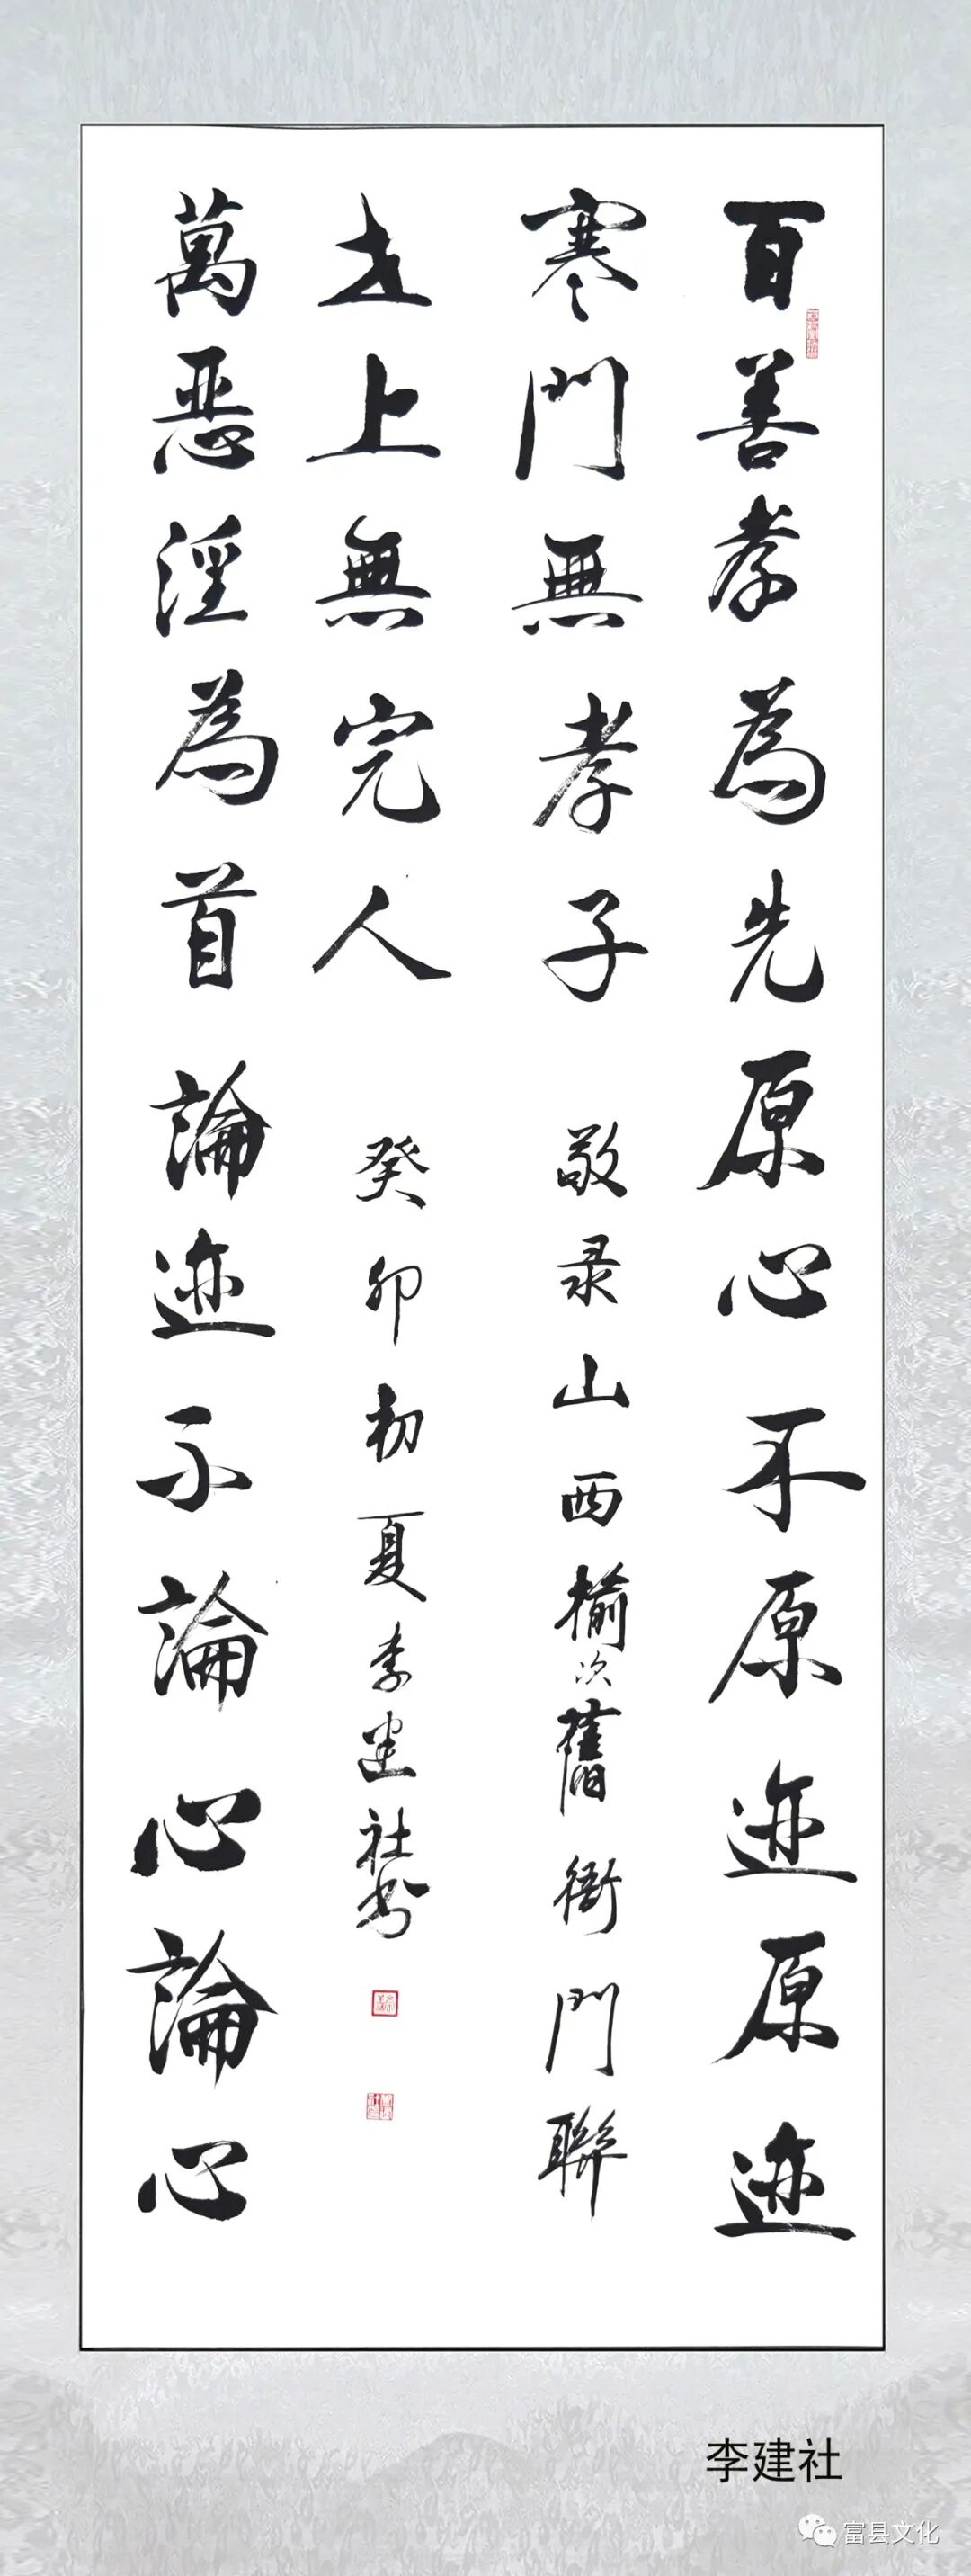 百善孝為先原心不原迹原迹
寒門無孝子
萬恶淫為首論迹不論心論心
世上無完人
敬录山西榆次舊衙門聯
癸卯初夏李建社书
李建社
富县文化